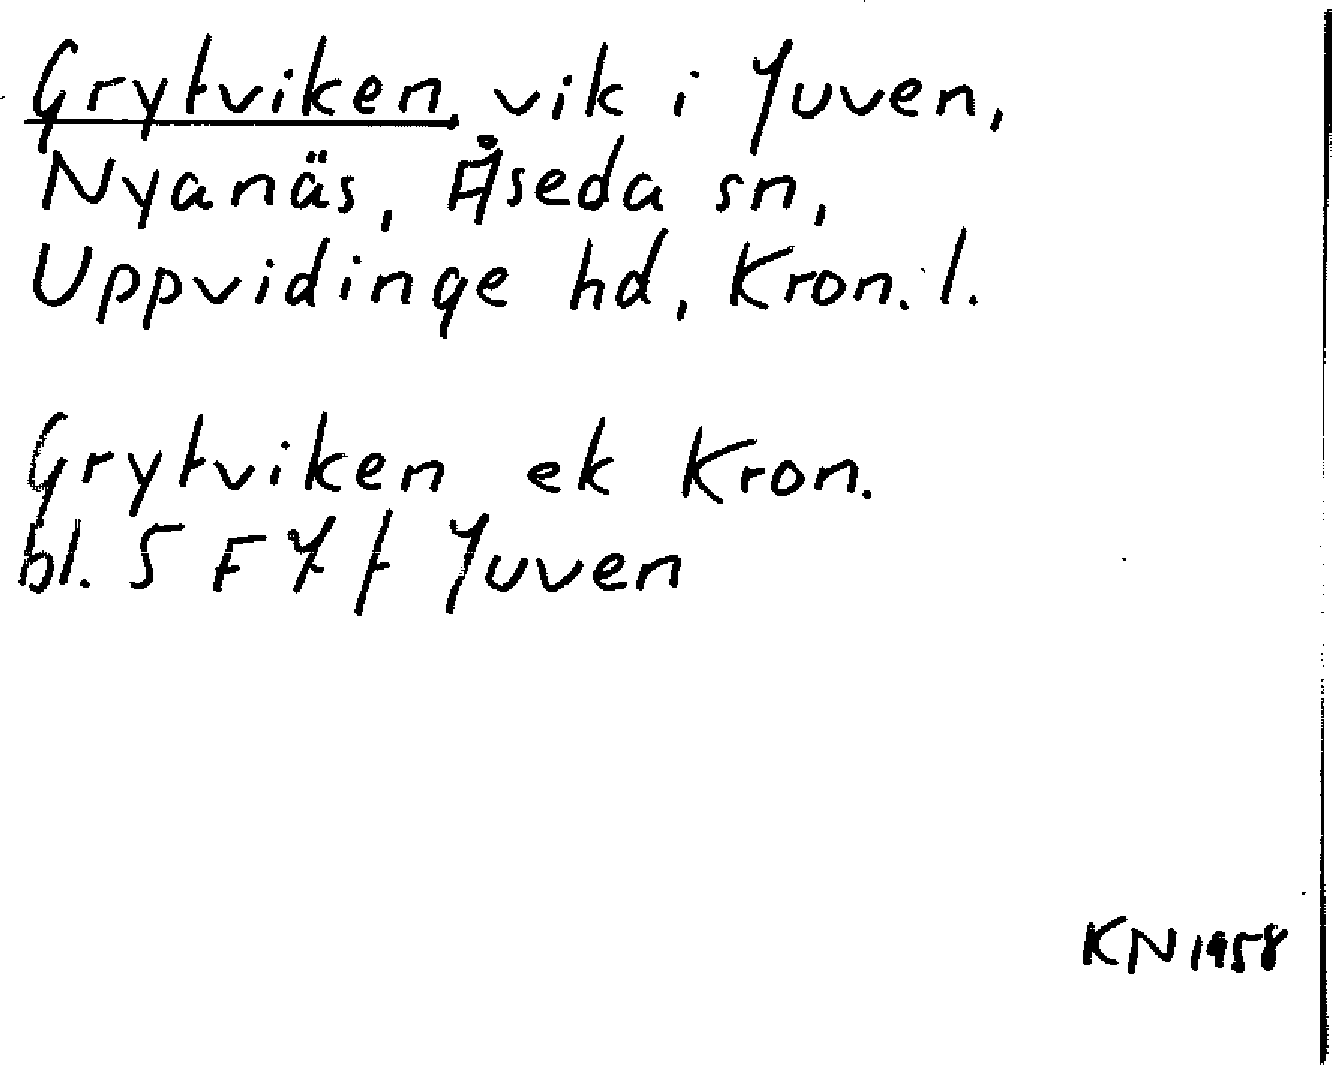 Grytviken, vik i Juven,
Nyanäs, Åseda sn,
Uppvidinge hd, Kron. l.
Grytviken ek Kron.
bl. 5 F 7 f Juven
KN 1958